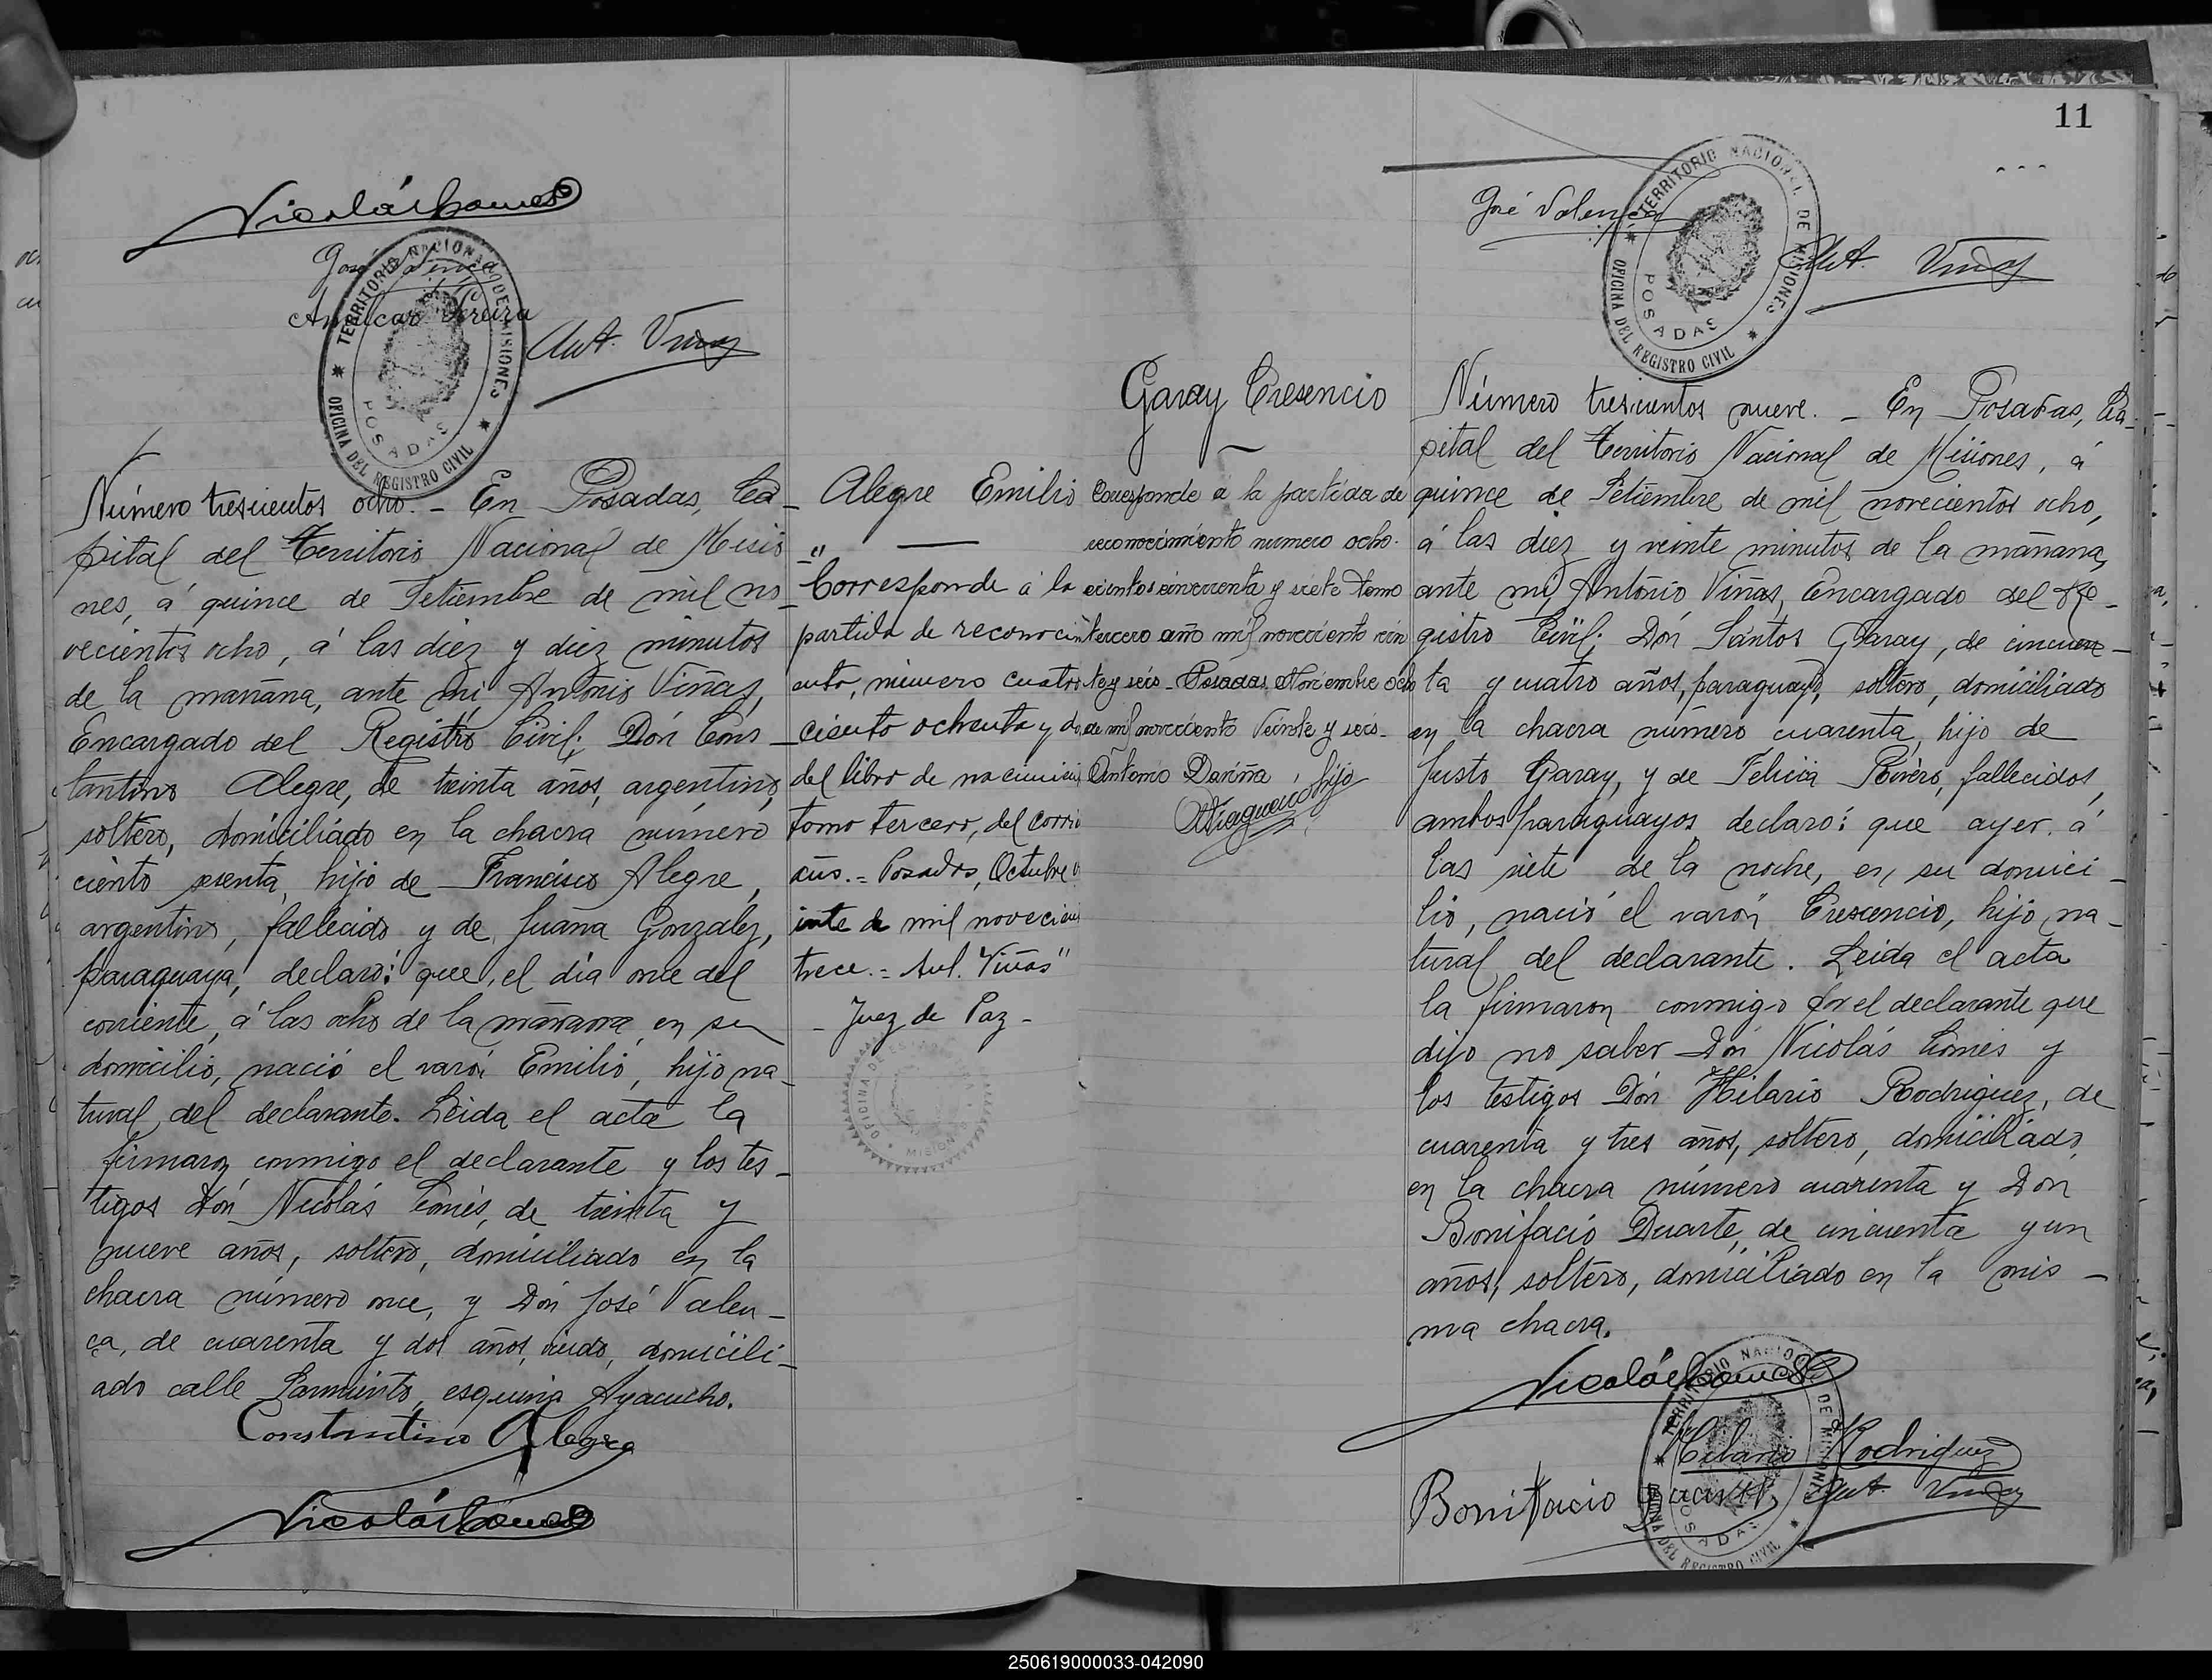 Nicolás Gomes
José Valença
Amilcar Pereira
Ant. Viñas
TERRITORIO NACIONAL DE MISIONES
POSADAS
OFICINA DEL REGISTRO CIVIL
Número trescientos ocho. - En Posadas, Ca-
pital del Territorio Nacional de Misio
nes, á quince de Setiembre de mil no-
vecientos ocho, á las diez y diez minutos
de la mañana, ante mi, Antonio Viñas,
Encargado del Registro Civil; Dón Cons-
tantino Alegre, de treinta años, argentino,
soltero, domiciliado en la chacra número
ciento sesenta, hijo de Francisco Alegre,
argentino, fallecido y de Juana Gonzalez,
paraguaya, declaró: que, el día once del
corriente, á las ocho de la mañana, en su
domicilio, nació el varón Emilio, hijo na-
tural del declarante. Leida el acta la
firmaron conmigo el declarante y los tes-
tigos Dón Nicolás Gomes, de treinta y
nueve años, soltero, domiciliado en la
chacra número once, y Dón José Valen-
ça, de cuarenta y dos años, viudo, domicili-
ado calle Sarmiento, esquina Ayacucho.
Constantino Alegre
Nicolás Gomes
Alegre Emilio
"
Corresponde á la
partida de reconocim
ento, número cuatro
ciento ochenta y do
del libro de nacimien
tomo tercero, del corri
año.= Posadas, Octubre
de mil novecien
trece.= Ant. Viñas"
- Juez de Paz -
OFICINA DE
MISIONES
11
José Valença
Ant. Viñas
TERRITORIO NACIONAL DE MISIONES
POSADAS
OFICINA DEL REGISTRO CIVIL
Garay Cresencio
Corresponde á la partida de
reconocimiento numero ocho-
cientos cincuenta y siete tomo
tercero año mil novecciento vein
te y seis - Posadas, Noviembre ocho
de mil novecciento Veinte y seis-
Antonio hijo
Número trescientos nueve. - En Posadas, Ca-
pital del Territorio Nacional de Misiones, á
quince de Setiembre de mil novecientos ocho,
á las diez y veinte minutos de la mañana,
ante mi, Antonio Viñas, Encargado del Re-
gistro Civil; Dón Santos Garay, de cincuen-
ta y cuatro años, paraguayo, soltero, domiciliado
en la chacra número cuarenta, hijo de
Justo Garay, y de Felicia Rivero, fallecidos,
ambos paraguayos, declaró: que ayer á
las siete de la noche, en su domici-
lio, nació el varón Crescencio, hijo na-
tural del declarante. Leida el acta
la firmaron conmigo por el declarante que
dijo no saber Dón Nicolás Gomes y
los testigos Dón Hilario Rodriguez, de
cuarenta y tres años, soltero, domiciliado,
en la chacra número cuarenta y Don
Bonifacio Duarte, de cincuenta y un
años, soltero, domiciliado en la mis-
ma chacra.
Nicolás Gomes
Hilario Rodriguez
Bonifacio Duarte
Ant. Viñas
TERRITORIO NACIONAL DE MISIONES
POSADAS
OFICINA DEL REGISTRO CIVIL
250619000033-042090